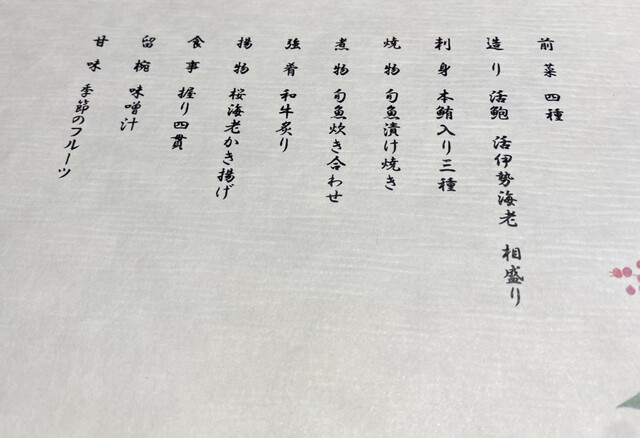 前菜 四種
造り 活鮑 活伊勢海老 相盛り
刺身 本鮪入り三種
焼物 旬魚漬け焼き
煮物 旬魚炊き合わせ
強肴 和牛炙り
揚物 桜海老かき揚げ
食事 握り四貫
留椀 味噌汁
甘味 季節のフルーツ